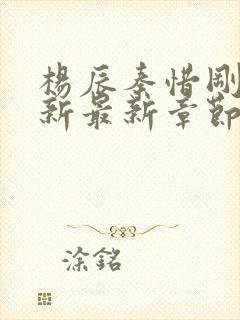 楊辰秦惜剛
新最新章節
涂銘